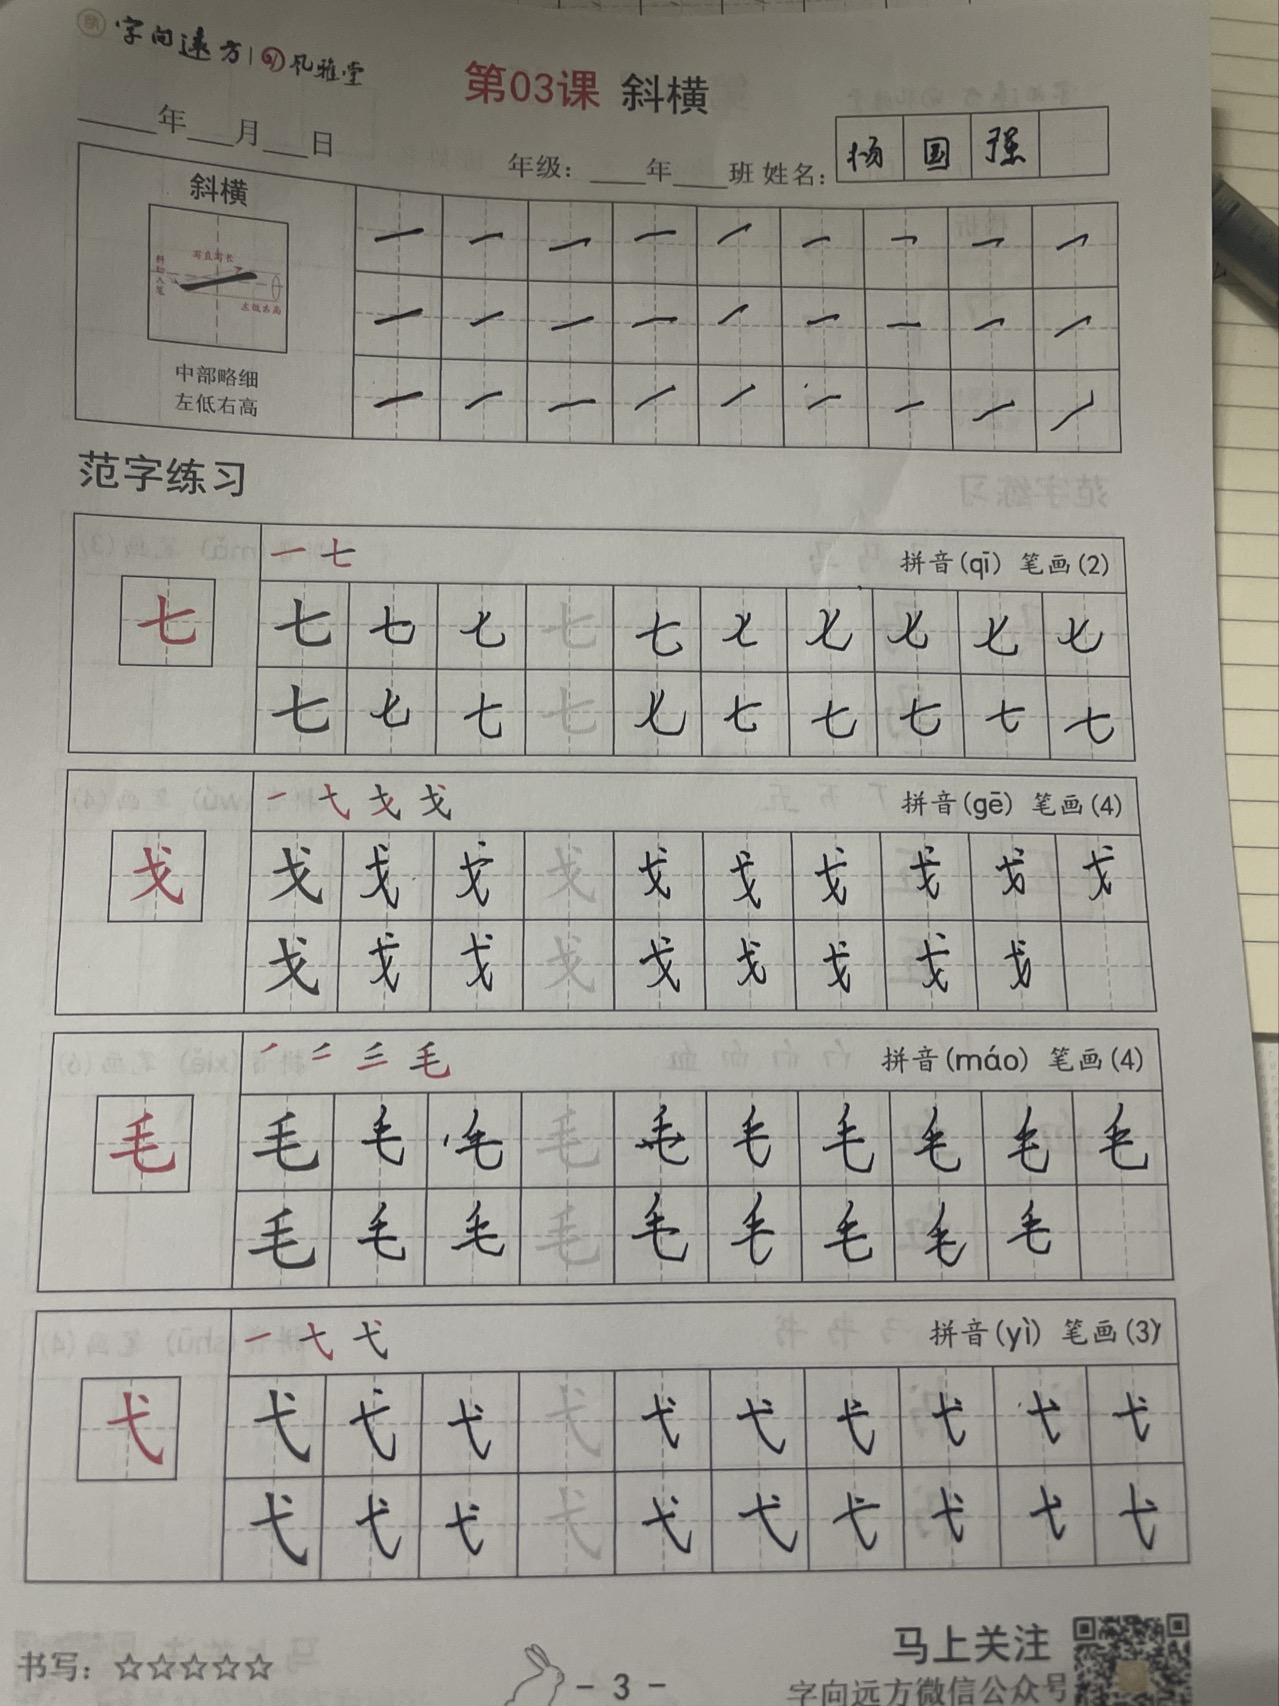 字向远方 风雅堂
第03课 斜横
年 月 日
年级: 年 班 姓名: 杨国强
斜横
斜切入笔
写直写长
左低右高
中部略细
左低右高
一 一 一 一 一 一 一 一 一
一 一 一 一 一 一 一 一 一
一 一 一 一 一 一 一 一 一
范字练习
一 七 拼音(qī) 笔画(2)
七
七 七 七 七 七 七 七 七 七 七
七 七 七 七 七 七 七 七 七 七
一 弋 戈 戈 拼音(gē) 笔画(4)
戈
戈 戈 戈 戈 戈 戈 戈 戈 戈 戈
戈 戈 戈 戈 戈 戈 戈 戈 戈
毛 拼音(máo) 笔画(4)
毛
毛 毛 毛 毛 毛 毛 毛 毛 毛 毛
毛 毛 毛 毛 毛 毛 毛 毛 毛
一 弋 拼音(yì) 笔画(3)
弋
弋 弋 弋 弋 弋 弋 弋 弋 弋 弋
弋 弋 弋 弋 弋 弋 弋 弋 弋 弋
书写: ☆☆☆☆☆
- 3 -
马上关注
字向远方微信公众号